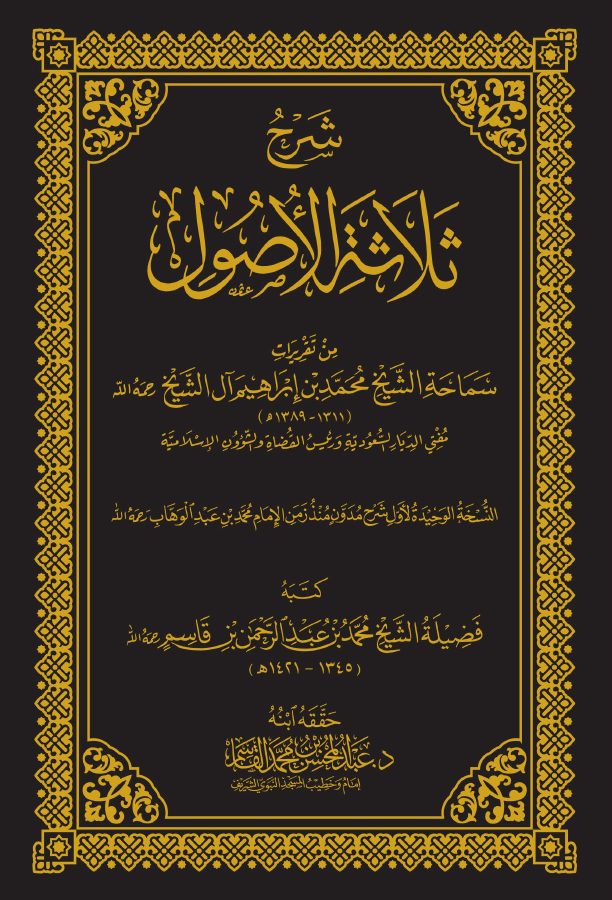 شَرْحُ
ثَلَاثَةِ الأُصُولِ
مِنْ تَقْرِيرَاتِ
سَمَاحَةِ الشَّيْخِ مُحَمَّدِ بْنِ إِبْرَاهِيمَ آلِ الشَّيْخِ رحمه الله
(١٣١١ - ١٣٨٩ه)
مُفْتِي الدِّيَارِ السُّعُودِيَّةِ وَرَئِيسِ القُضَاةِ وَالشُّؤُونِ الإِسْلَامِيَّة
النُّسْخَةُ الوَحِيدَةُ لِأَوَّلِ شَرْحٍ مُدَوَّنٍ مُنْذُ زَمَنِ الإِمَامِ مُحَمَّدِ بْنِ عَبْدِ الْوَهَّابِ رَحِمَهُ الله
كَتَبَهُ
فَضِيلَةُ الشَّيْخِ مُحَمَّدُ بْنُ عَبْدِ الرَّحْمَنِ بْنِ قَاسِمٍ رحمه الله
(١٣٤٥ - ١٤٢١ه)
حَقَّقَهُ ابْنُهُ
د. عَبْدُ الْمُحْسِنِ بْنُ مُحَمَّدٍ الْقَاسِمِ
إِمَامُ وَخَطِيبُ المَسْجِدِ النَّبَوِيِّ الشَّرِيفِ